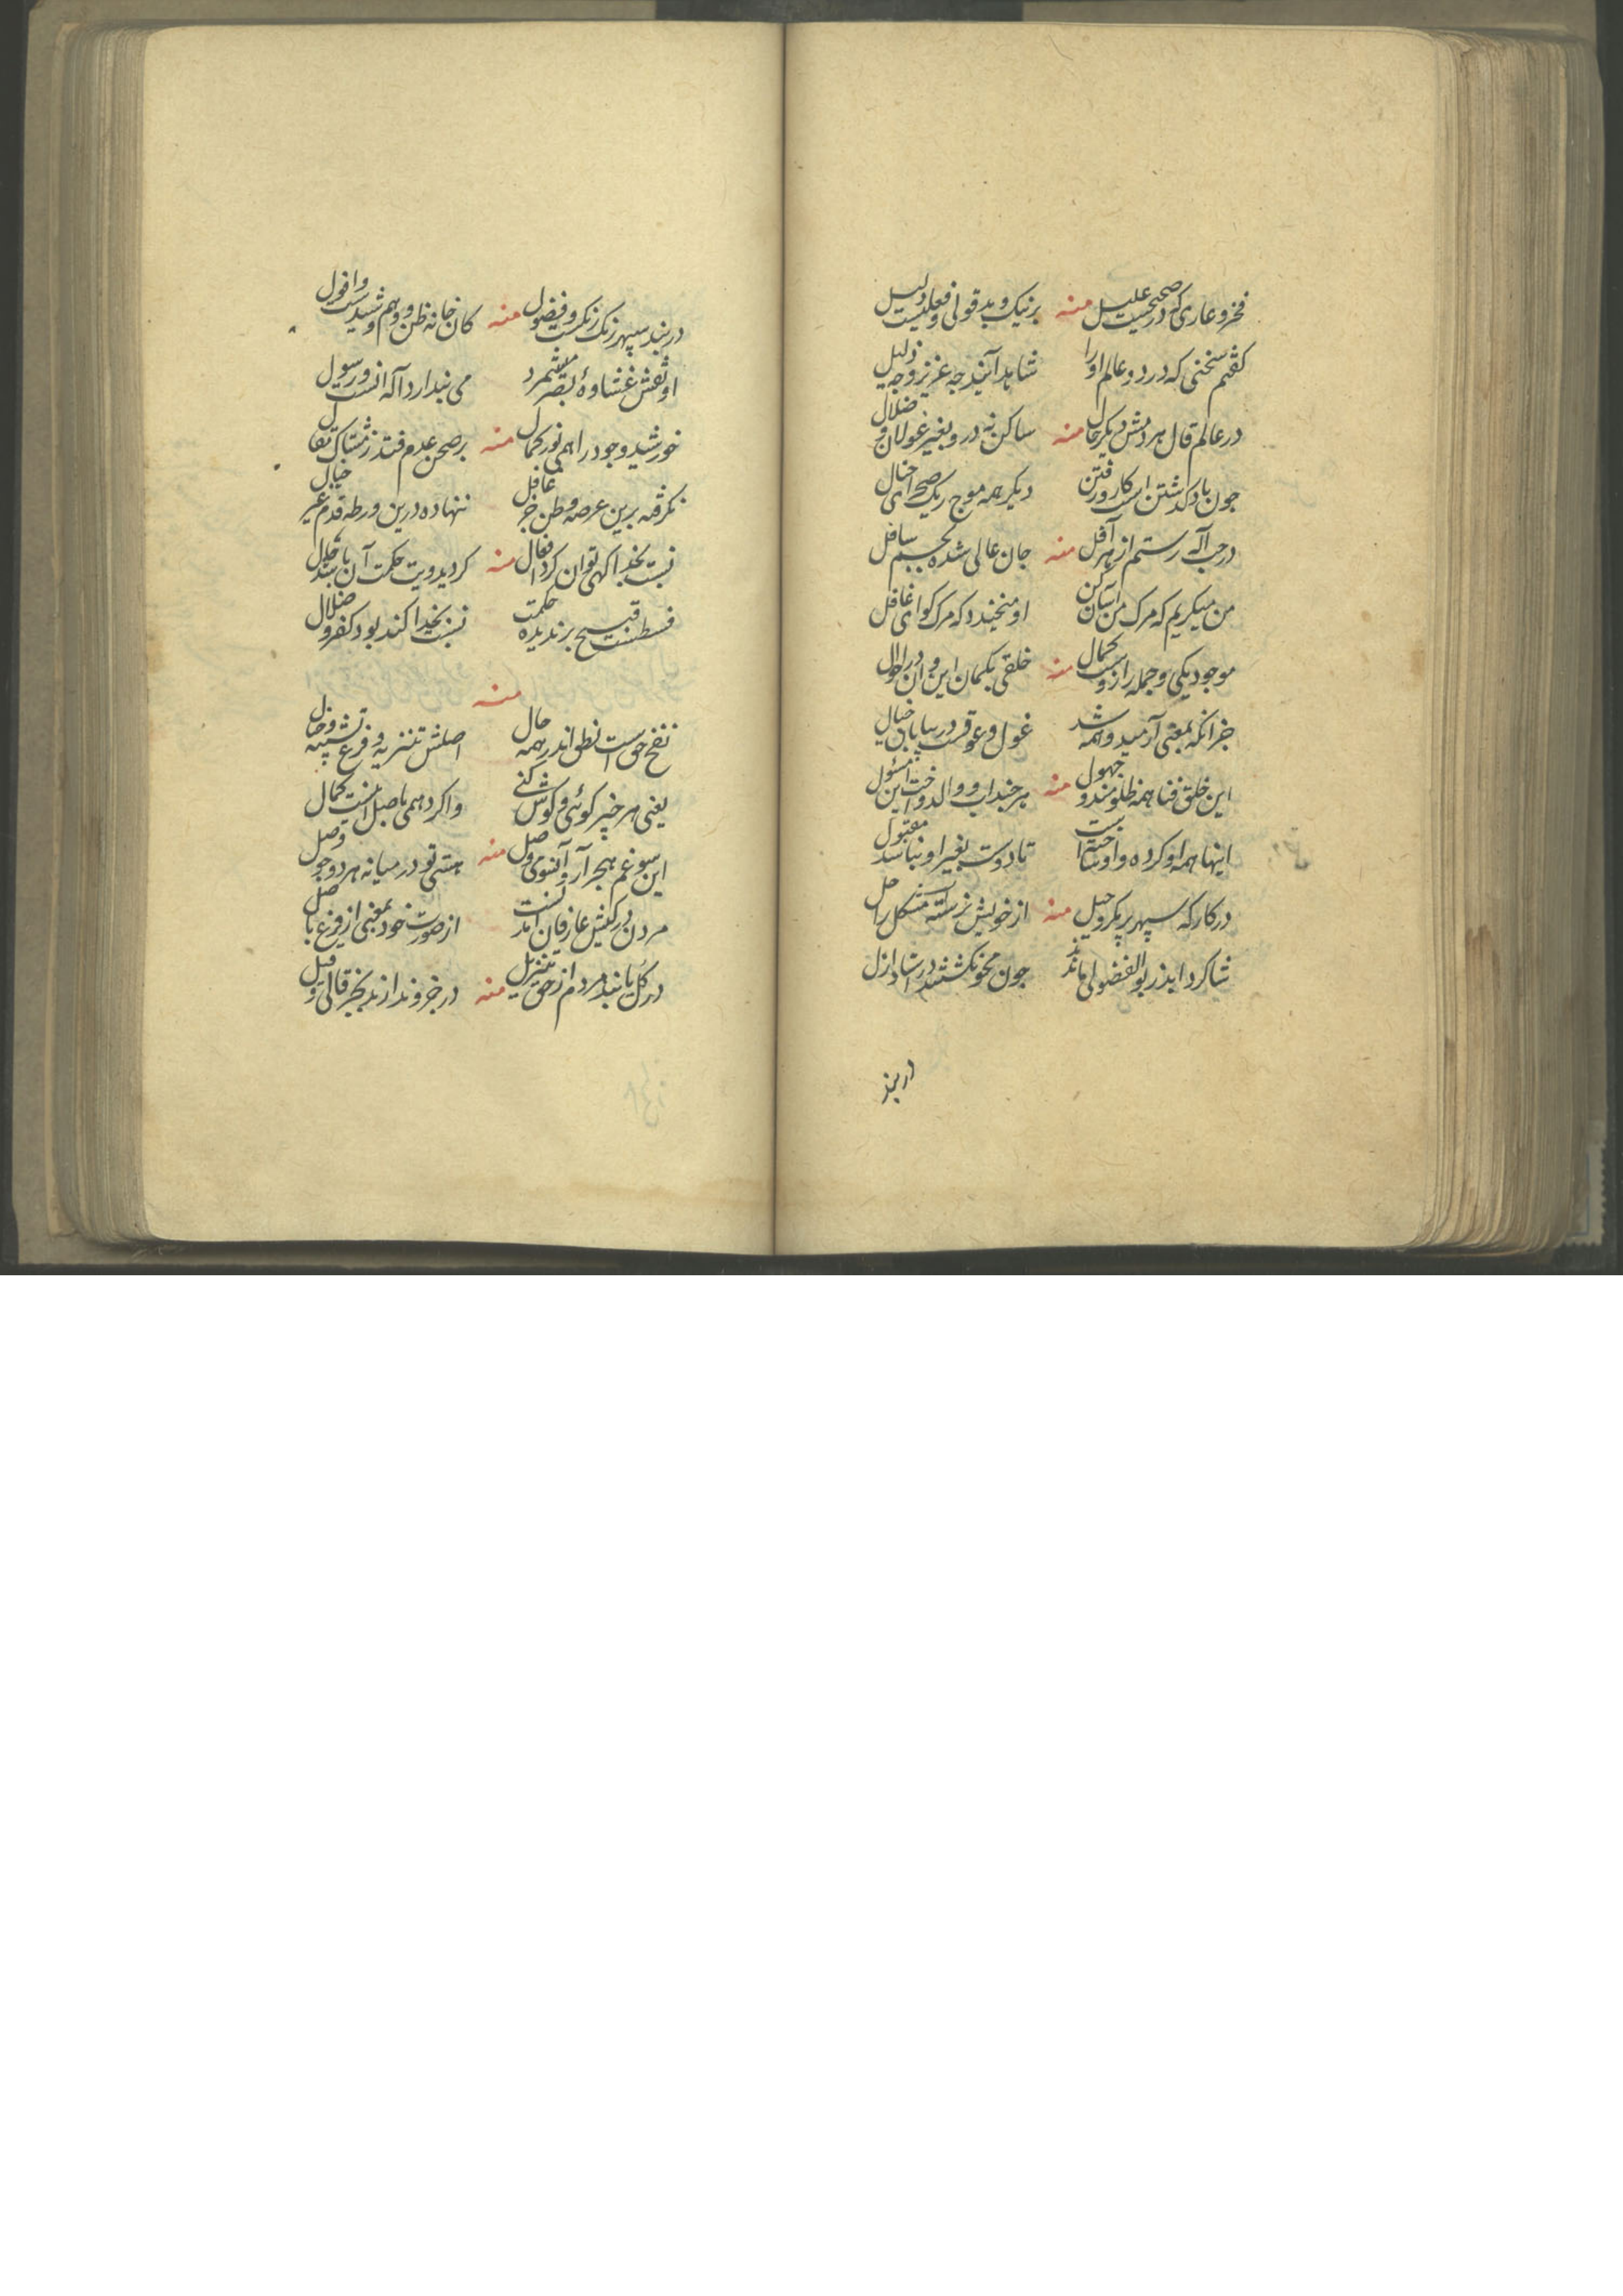 فخر و عاری که در صحیحست علیل منه بر نیک و بد قولی و فعلیست دلیل
کفتم سخنی که در دو عالم او را شاهد آیند چه عزیز و چه ذلیل
در عالم قال هر دمش دیکر حال منه ساکن نه درو بغیر غولان و ضلال
چون باد کذشتن است کار و رفتن دیکر همه موج ریک صحرای خیال
در چاه آکه رستم از هر آفل منه جان عالی شده بجسم سافل
من میکریم که مرک من آسان کن او میخندد که مرک کو ای غافل
موجود یکی و جمله را زوست کمال منه خلقی بکمان این و آن در احوال
جز آنکه بمعنی آرمید و همه شد غول و غوقست در بیابان خیال
این خلق فنا همه ظلومند و جهول منه هر چند اب و والد و اخت این مسئول
اینها همه او کرده و او ساخته است تا دوست بغیر او نباشد مقبول
در کار که سپهر پر مکر و حیل منه از خویش نرسته مشکل را حل
شاکرد ابد ز بو الفضولی ماندند چون محو نکشتند در استاد ازل
دربند
در بند سپهر زنک زنکست و فضول منه کان خانه ظن و وهم و شیدست و افول
او ثقش غشاوهٔ بصر میشمرد می نبدارد آله انست و رسول
خورشید وجود را همی نور کمال منه بر صحن عدم فتد ز مشتاک تعال
نکرفته برین عرصه وطن جز غافل ننهاده درین ورطه قدم غیر خیال
نسبت بخدا کهی توان کرد افعال منه کردید و یت حکمت آن باشد حال
فسطنت قبیح بر ندیده حکمت نسبت بخدا کند بود کفر و ضلال
منه
نفخ حق است نطق اندر همه حال اصلش تنزیه و فرع تشبیه و خیال
یعنی هر خیر کوئی و کوش کنی واکرد همی باصل اینست کمال
این سو غم هجر آر و آنسوی وصل منه هستی تو در میانه هر دو چو فصل
مردن در کیش عارفان آمدنست از صورت خود بمعنی از فرع باصل
در کل یابند مردم از حق تنزیل منه در جزو ندارند بجز قال و قیل